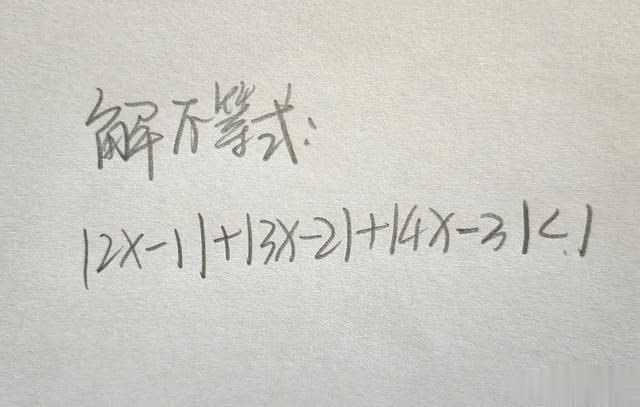 解不等式:
|2x-1|+|3x-2|+|4x-3|<1